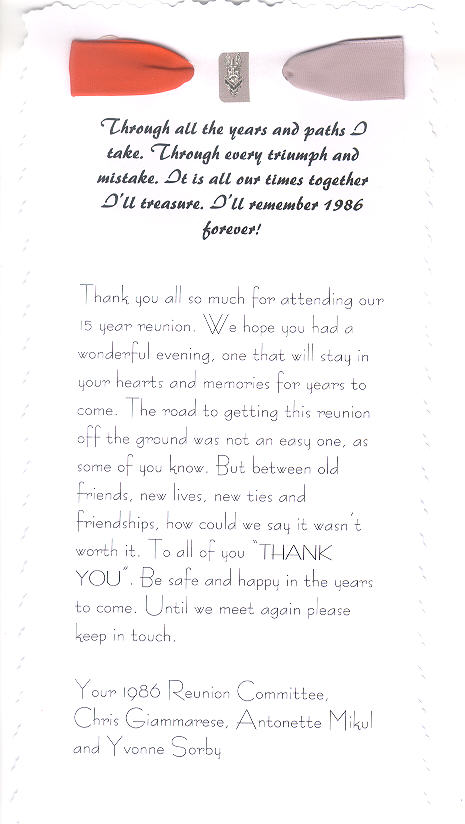 Through all the years and paths I
take. Through every triumph and
mistake. It is all our times together
I'll treasure. I'll remember 1986
forever!
Thank you all so much for attending our
15 year reunion. We hope you had a
wonderful evening, one that will stay in
your hearts and memories for years to
come. The road to getting this reunion
off the ground was not an easy one, as
some of you know. But between old
friends, new lives, new ties and
friendships, how could we say it wasn't
worth it. To all of you "THANK
YOU". Be safe and happy in the years
to come. Until we meet again please
keep in touch.
Your 1986 Reunion Committee,
Chris Giammarese, Antonette Mikul
and Yvonne Sorby